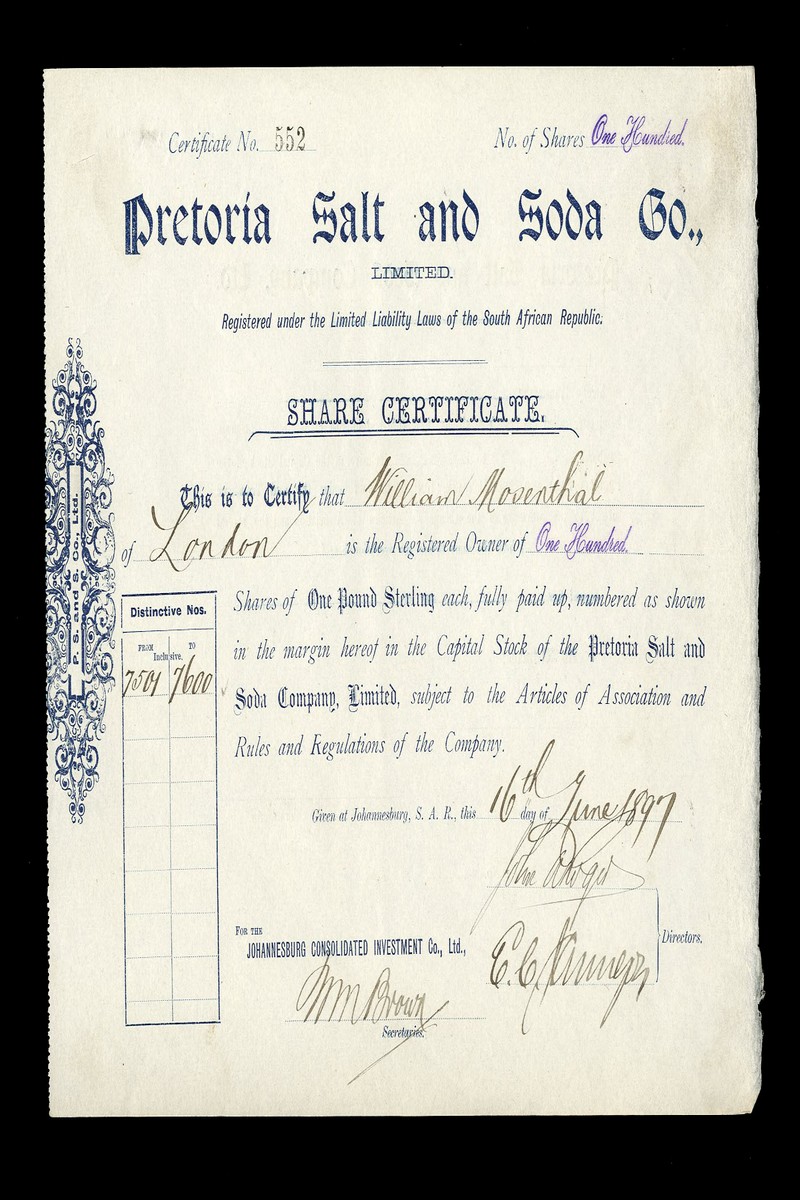 Certificate No. 552
No. of Shares One Hundred.
Pretoria Salt and Soda Co.,
LIMITED.
Registered under the Limited Liability Laws of the South African Republic.
SHARE CERTIFICATE.
This is to Certify that William Mosenthal
of London is the Registered Owner of One Hundred.
Distinctive Nos.
FROM TO
Inclusive.
7501 7600
Shares of One Pound Sterling each, fully paid up, numbered as shown
in the margin hereof in the Capital Stock of the Pretoria Salt and
Soda Company, Limited, subject to the Articles of Association and
Rules and Regulations of the Company.
P. S. and S. Co., Ltd.
Given at Johannesburg, S. A. R., this 16th day of June 1897
John
E. C.
Directors.
FOR THE
JOHANNESBURG CONSOLIDATED INVESTMENT Co., Ltd.,
Wm Brown
Secretaries.